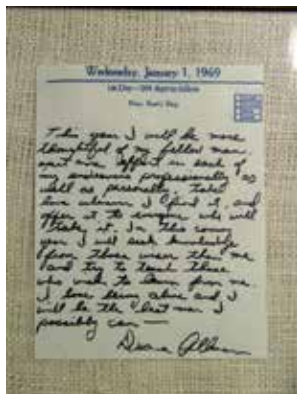 Wednesday, January 1, 1969
1st Day—364 days to follow
New Year's Day
This year I will be more
thoughtful of my fellow man,
exert more effort in each of
my endeavors professionally as
well as personally. Take
love wherever I find it, and
offer it to everyone who will
take it. In this coming
year I will seek knowledge
from those wiser than me
and try to teach those
who wish to learn from me.
I love being alive and I
will be the best man I
possibly can —
Duane Allman